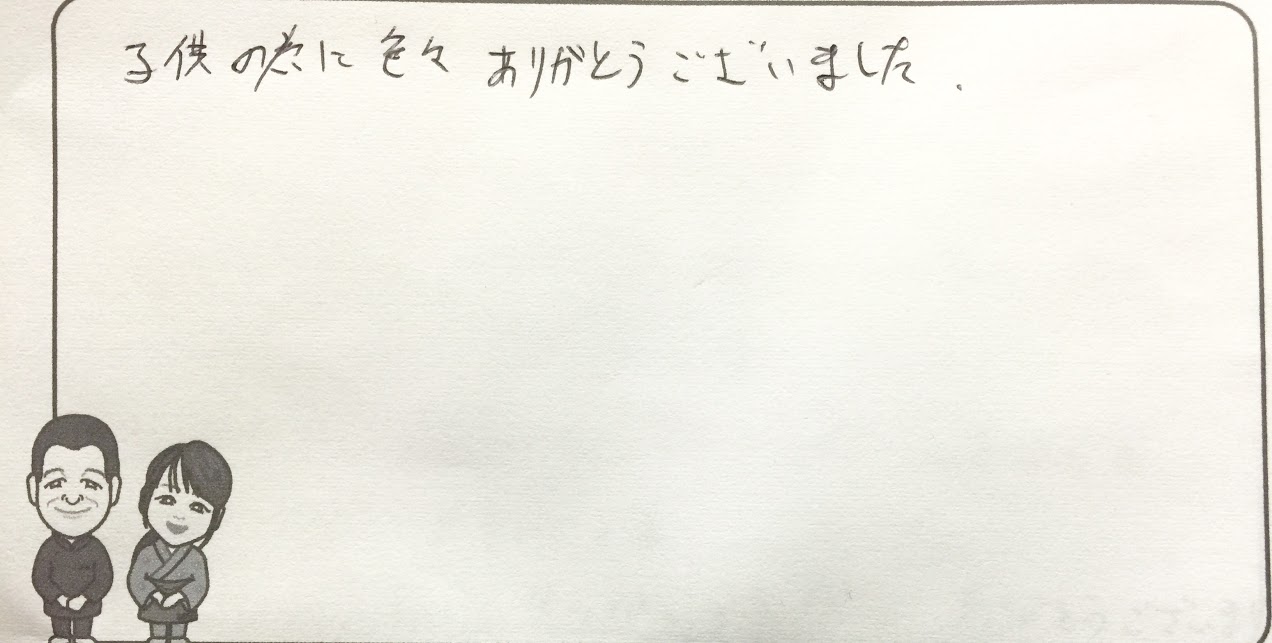 子供の為に色々ありがとうございました.